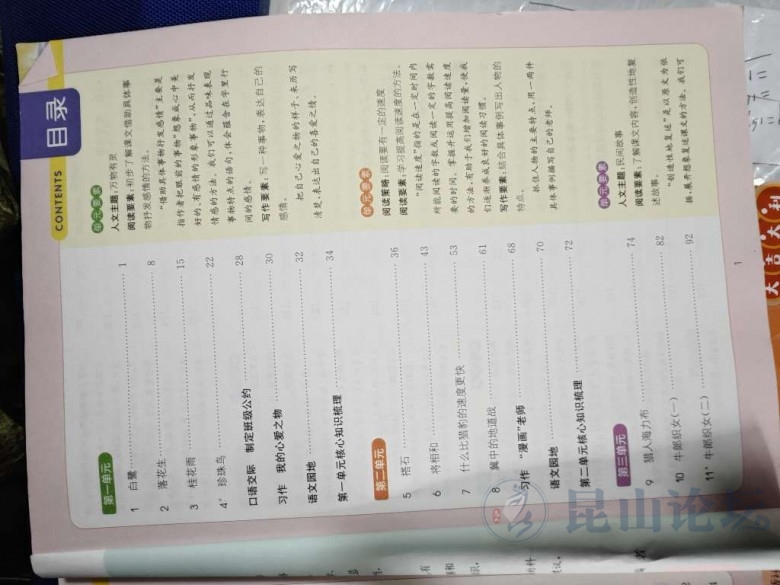 目录
CONTENTS
第一单元
1 白鹭 1
2 落花生 8
3 桂花雨 15
4* 珍珠鸟 22
口语交际 制定班级公约 28
习作 我的心爱之物 30
语文园地 32
第一单元核心知识梳理 34
单元要素
人文主题:万物有灵
阅读要素:初步了解课文借助具体事
物抒发感情的方法。
“借助具体事物抒发感情”主要是
指作者把眼前的事物
情感的方法。我们可以通过品味表现
事物特点的语句,体会蕴含在字里行
间的感情。
写作要素:写一种事物,表达自己的
感情。
把自己心爱之物的样子、来历写
清楚,表达出自己的喜爱之情。
第二单元
5 搭石 36
6 将相和 43
7 什么比猎豹的速度更快 53
8 冀中的地道战 61
习作 “漫画”老师 68
语文园地 70
第二单元核心知识梳理 72
单元要素
阅读策略:阅读要有一定的速度
阅读要素:学习提高阅读速度的方法。
“阅读速度”指的是在一定时间内
所能阅读的字数或阅读一定的字数需
要的时间。掌握并运用提高阅读速度
的方法,有助于我们增加阅读量,使我
们逐渐养成良好的阅读习惯。
写作要素:结合具体事例写出人物的
特点。
抓住人物的主要特点,用一两件
具体事例描写自己的老师。
第三单元
9 猎人海力布 74
10 牛郎织女(一) 82
11* 牛郎织女(二) 92
单元要素
人文主题:民间故事
阅读要素:了解课文内容,创造性地复
述故事。
“创造性地复述”是以原文为依
据,展开想象复述课文的方法。我们可
1
大吉大利
昆山论坛